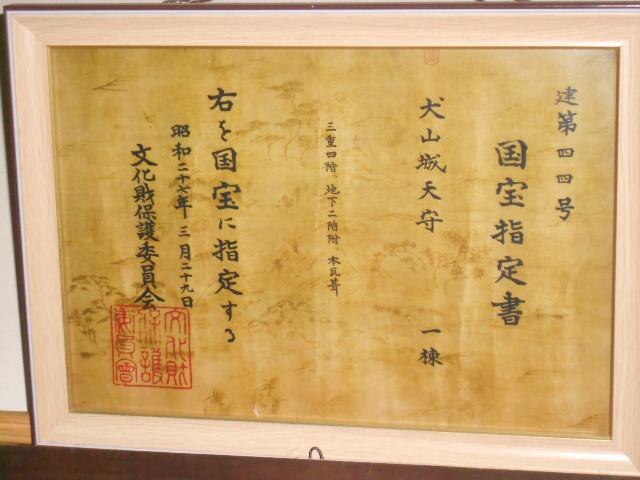 建第四四号
国宝指定書
犬山城天守 一棟
三重四階、地下二階附 本瓦葺
右を国宝に指定する
昭和二十七年三月二十九日
文化財保護委員会
文化財
保護
委員會